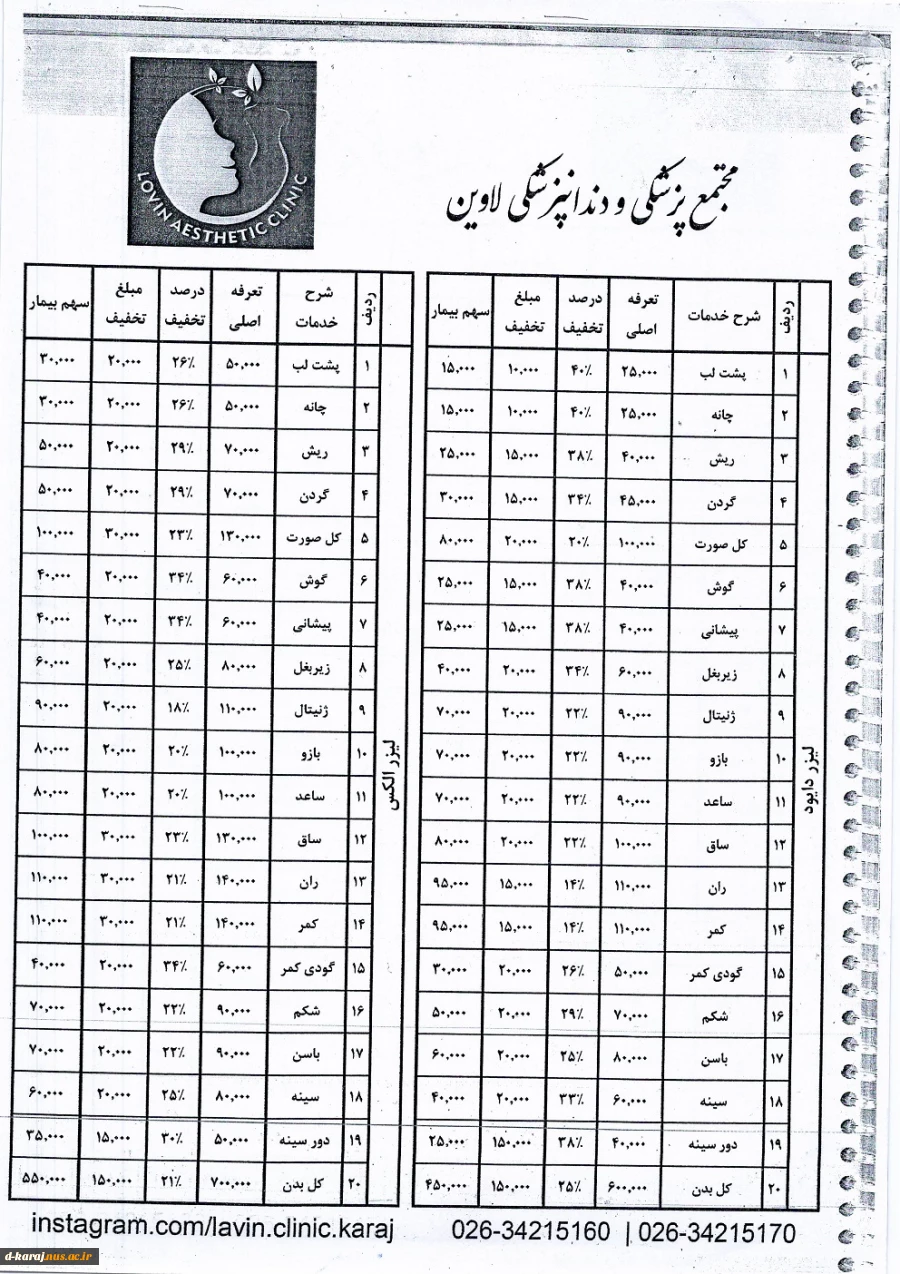 LOVIN AESTHETIC CLINIC
مجتمع پزشکی و دندانپزشکی لاوین
ردیف شرح خدمات تعرفه اصلی درصد تخفیف مبلغ تخفیف سهم بیمار
لیزر دایود
۱ پشت لب ۲۵,۰۰۰ ۴۰٪ ۱۰,۰۰۰ ۱۵,۰۰۰
۲ چانه ۲۵,۰۰۰ ۴۰٪ ۱۰,۰۰۰ ۱۵,۰۰۰
۳ ریش ۴۰,۰۰۰ ۳۸٪ ۱۵,۰۰۰ ۲۵,۰۰۰
۴ گردن ۴۵,۰۰۰ ۳۴٪ ۱۵,۰۰۰ ۳۰,۰۰۰
۵ کل صورت ۱۰۰,۰۰۰ ۲۰٪ ۲۰,۰۰۰ ۸۰,۰۰۰
۶ گوش ۴۰,۰۰۰ ۳۸٪ ۱۵,۰۰۰ ۲۵,۰۰۰
۷ پیشانی ۴۰,۰۰۰ ۳۸٪ ۱۵,۰۰۰ ۲۵,۰۰۰
۸ زیربغل ۶۰,۰۰۰ ۳۴٪ ۲۰,۰۰۰ ۴۰,۰۰۰
۹ ژنیتال ۹۰,۰۰۰ ۲۲٪ ۲۰,۰۰۰ ۷۰,۰۰۰
۱۰ بازو ۹۰,۰۰۰ ۲۲٪ ۲۰,۰۰۰ ۷۰,۰۰۰
۱۱ ساعد ۹۰,۰۰۰ ۲۲٪ ۲۰,۰۰۰ ۷۰,۰۰۰
۱۲ ساق ۱۰۰,۰۰۰ ۲۲٪ ۲۰,۰۰۰ ۸۰,۰۰۰
۱۳ ران ۱۱۰,۰۰۰ ۱۴٪ ۱۵,۰۰۰ ۹۵,۰۰۰
۱۴ کمر ۱۱۰,۰۰۰ ۱۴٪ ۱۵,۰۰۰ ۹۵,۰۰۰
۱۵ گودی کمر ۵۰,۰۰۰ ۲۶٪ ۲۰,۰۰۰ ۳۰,۰۰۰
۱۶ شکم ۷۰,۰۰۰ ۲۹٪ ۲۰,۰۰۰ ۵۰,۰۰۰
۱۷ باسن ۸۰,۰۰۰ ۲۵٪ ۲۰,۰۰۰ ۶۰,۰۰۰
۱۸ سینه ۶۰,۰۰۰ ۳۳٪ ۲۰,۰۰۰ ۴۰,۰۰۰
۱۹ دور سینه ۴۰,۰۰۰ ۳۸٪ ۱۵۰,۰۰۰ ۲۵,۰۰۰
۲۰ کل بدن ۶۰۰,۰۰۰ ۲۵٪ ۱۵۰,۰۰۰ ۴۵۰,۰۰۰
ردیف شرح خدمات تعرفه اصلی درصد تخفیف مبلغ تخفیف سهم بیمار
لیزر الکس
۱ پشت لب ۵۰,۰۰۰ ۲۶٪ ۲۰,۰۰۰ ۳۰,۰۰۰
۲ چانه ۵۰,۰۰۰ ۲۶٪ ۲۰,۰۰۰ ۳۰,۰۰۰
۳ ریش ۷۰,۰۰۰ ۲۹٪ ۲۰,۰۰۰ ۵۰,۰۰۰
۴ گردن ۷۰,۰۰۰ ۲۹٪ ۲۰,۰۰۰ ۵۰,۰۰۰
۵ کل صورت ۱۳۰,۰۰۰ ۲۳٪ ۳۰,۰۰۰ ۱۰۰,۰۰۰
۶ گوش ۶۰,۰۰۰ ۳۴٪ ۲۰,۰۰۰ ۴۰,۰۰۰
۷ پیشانی ۶۰,۰۰۰ ۳۴٪ ۲۰,۰۰۰ ۴۰,۰۰۰
۸ زیربغل ۸۰,۰۰۰ ۲۵٪ ۲۰,۰۰۰ ۶۰,۰۰۰
۹ ژنیتال ۱۱۰,۰۰۰ ۱۸٪ ۲۰,۰۰۰ ۹۰,۰۰۰
۱۰ بازو ۱۰۰,۰۰۰ ۲۰٪ ۲۰,۰۰۰ ۸۰,۰۰۰
۱۱ ساعد ۱۰۰,۰۰۰ ۲۰٪ ۲۰,۰۰۰ ۸۰,۰۰۰
۱۲ ساق ۱۳۰,۰۰۰ ۲۳٪ ۳۰,۰۰۰ ۱۰۰,۰۰۰
۱۳ ران ۱۴۰,۰۰۰ ۲۱٪ ۳۰,۰۰۰ ۱۱۰,۰۰۰
۱۴ کمر ۱۴۰,۰۰۰ ۲۱٪ ۳۰,۰۰۰ ۱۱۰,۰۰۰
۱۵ گودی کمر ۶۰,۰۰۰ ۳۴٪ ۲۰,۰۰۰ ۴۰,۰۰۰
۱۶ شکم ۹۰,۰۰۰ ۲۲٪ ۲۰,۰۰۰ ۷۰,۰۰۰
۱۷ باسن ۹۰,۰۰۰ ۲۲٪ ۲۰,۰۰۰ ۷۰,۰۰۰
۱۸ سینه ۸۰,۰۰۰ ۲۵٪ ۲۰,۰۰۰ ۶۰,۰۰۰
۱۹ دور سینه ۵۰,۰۰۰ ۳۰٪ ۱۵,۰۰۰ ۳۵,۰۰۰
۲۰ کل بدن ۷۰۰,۰۰۰ ۲۱٪ ۱۵۰,۰۰۰ ۵۵۰,۰۰۰
instagram.com/lavin.clinic.karaj 026-34215160 | 026-34215170
d-karaj.nus.ac.ir